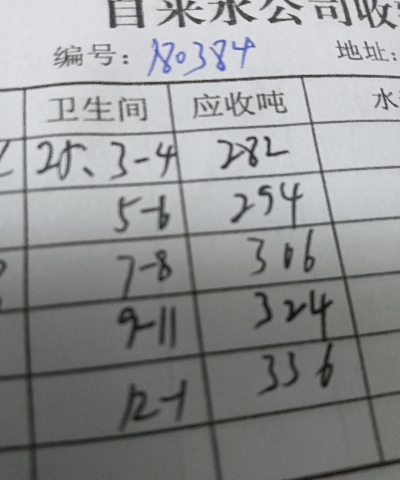 自来水公司收
编号：180384 地址：
卫生间 应收吨 水
25、3-4 282
5-6 294
7-8 306
9-11 324
12-1 336